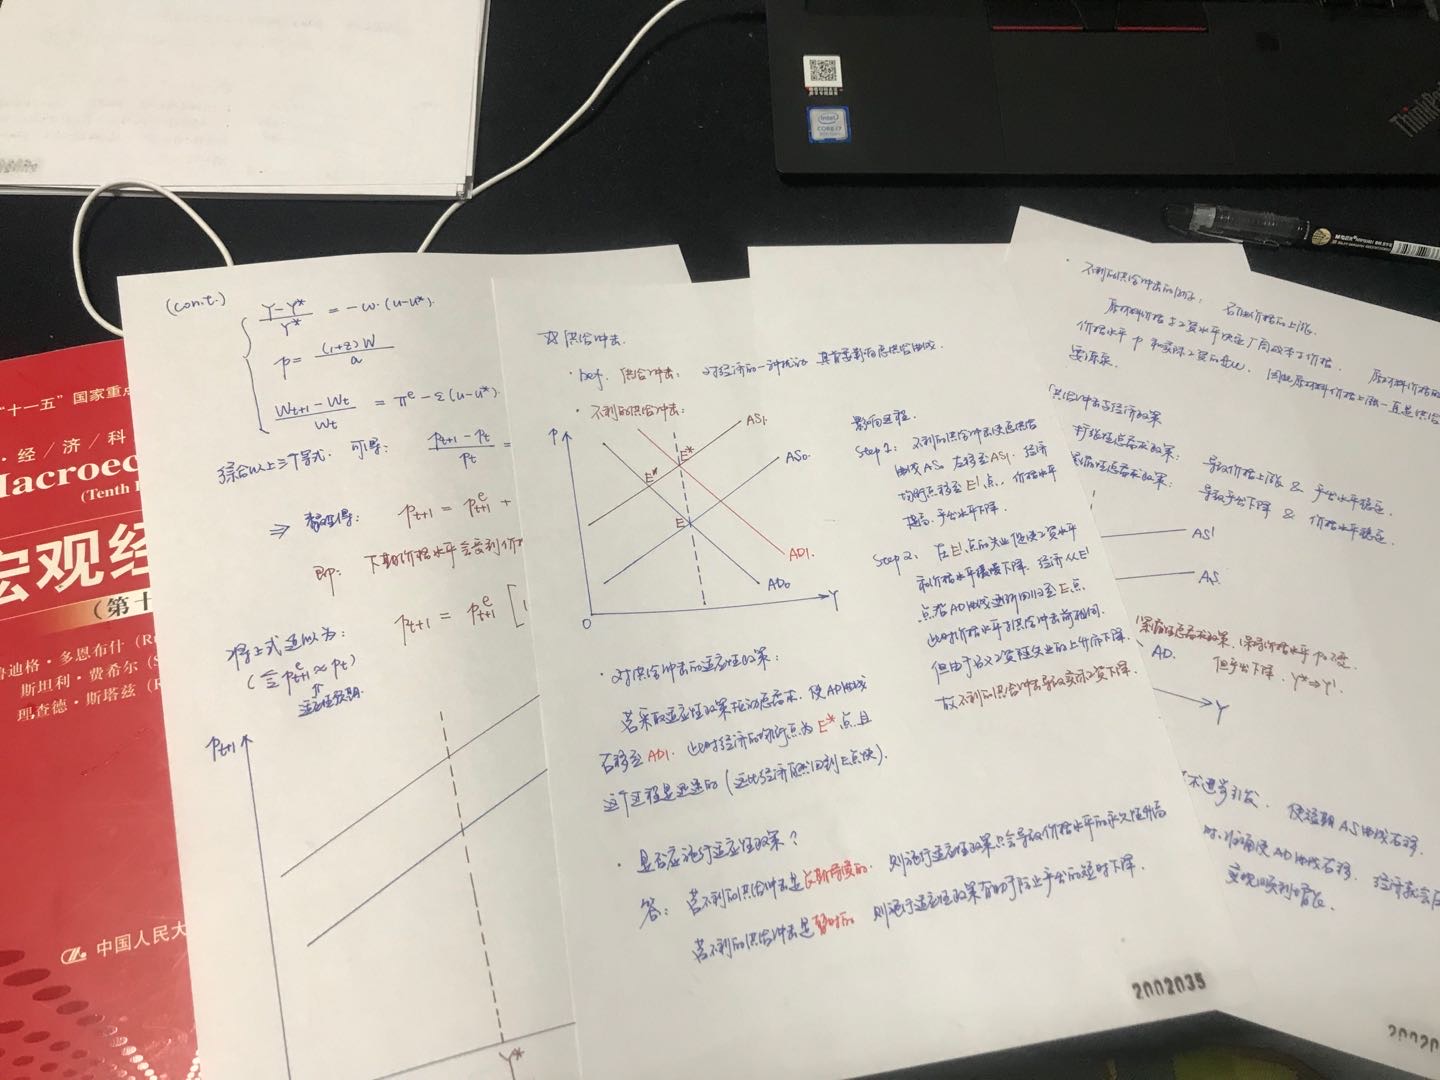 (cont.)
(Y-Y*)/Y* = -ω·(u-u*).
p = (1+z)W/a
(Wt+1 - Wt)/Wt = πe - ε(u-u*).
综合以上三个等式，可得： (pt+1 - pt)/pt =
⇒ 整理得： pt+1 = pe t+1 +
即： 下期价格水平会受到价格
将上式近似为： pt+1 = pe t+1 [1
(≦ pe t+1 ≈ pt)
适应性预期
pt+1
Y*
☆ 供给冲击.
· Def. 供给冲击： 对经济的一种扰动
· 不利的供给冲击：
P
AS1.
E*
E'
AS0.
E
AD1.
AD0
Y
0
影响过程.
Step 1： 不利的供给冲击使总供给
曲线AS0 左移至AS1. 经济
均衡点移至E'点，价格水平
提高，产出水平下降.
Step 2： 在E'点的失业促使工资水平
和价格水平缓慢下降. 经济从E'
点沿AD曲线逐渐回归至E点.
此时价格水平与供给冲击前相同.
但由于名义工资随失业的上升而下降.
故不利的供给冲击导致实际工资下降.
· 对供给冲击的适应性政策：
若采取适应性政策拉动总需求，使AD曲线
右移至AD1. 此时经济的均衡点为E*点. 且
这个过程是迅速的 (这比经济自然回到E点快).
· 是否应施行适应性政策？
答： 若不利的供给冲击是长期持续的， 则施行适应性政策只会导致价格水平的永久性升高
若不利的供给冲击是暂时的， 则施行适应性政策有助于防止产出的短时下降.
2002035
· 不利的供给冲击的例子： 石油价格的上涨.
原材料价格与工资水平决定厂商成本与价格.
原材料价格的
价格水平 P 和实际工资的变化， 因此原材料价格上涨一直是供给
要源泉.
供给冲击与经济政策
扩张性总需求政策： 导致价格上涨 & 产出水平稳定.
紧缩性总需求政策： 导致产出下降 & 价格水平稳定.
AS'
AS.
紧缩性总需求政策，保持价格水平P0不变.
但产出下降. Y*→Y'.
AD.
Y
使短期AS曲线右移.
时，准确使AD曲线右移. 经济就会
实现顺利增长.
20020
“十一五”国家重点
·经/济/科
Macroec
(Tenth
宏观经
（第十
鲁迪格·多恩布什 (Ru
斯坦利·费希尔 (S
理查德·斯塔兹 (R
中国人民大
intel
CORE i7
ThinkPad